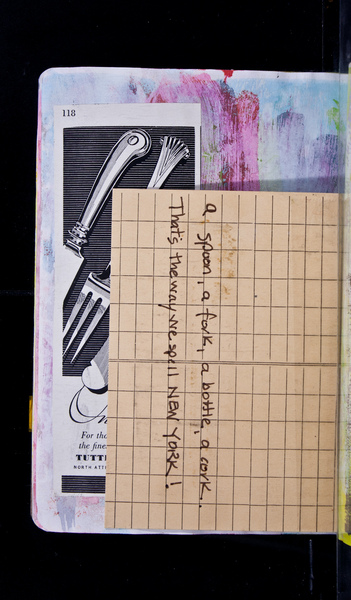 118
a spoon, a fork, a bottle, a cork.
That's the way we spell NEW YORK!
For tho
the fines
TUTT
NORTH ATT